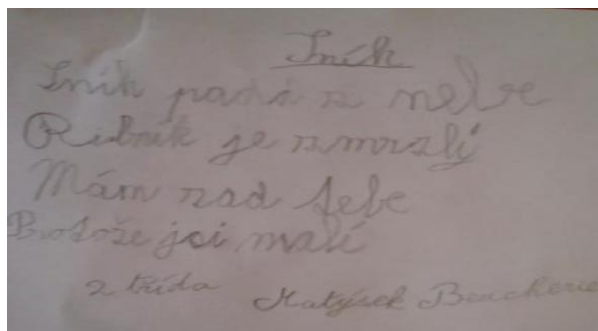 Sník
Sník padá z nebe
Ribník je zmrzlí
Mám rád tebe
Protože jsi malí
2 třída Matýsek